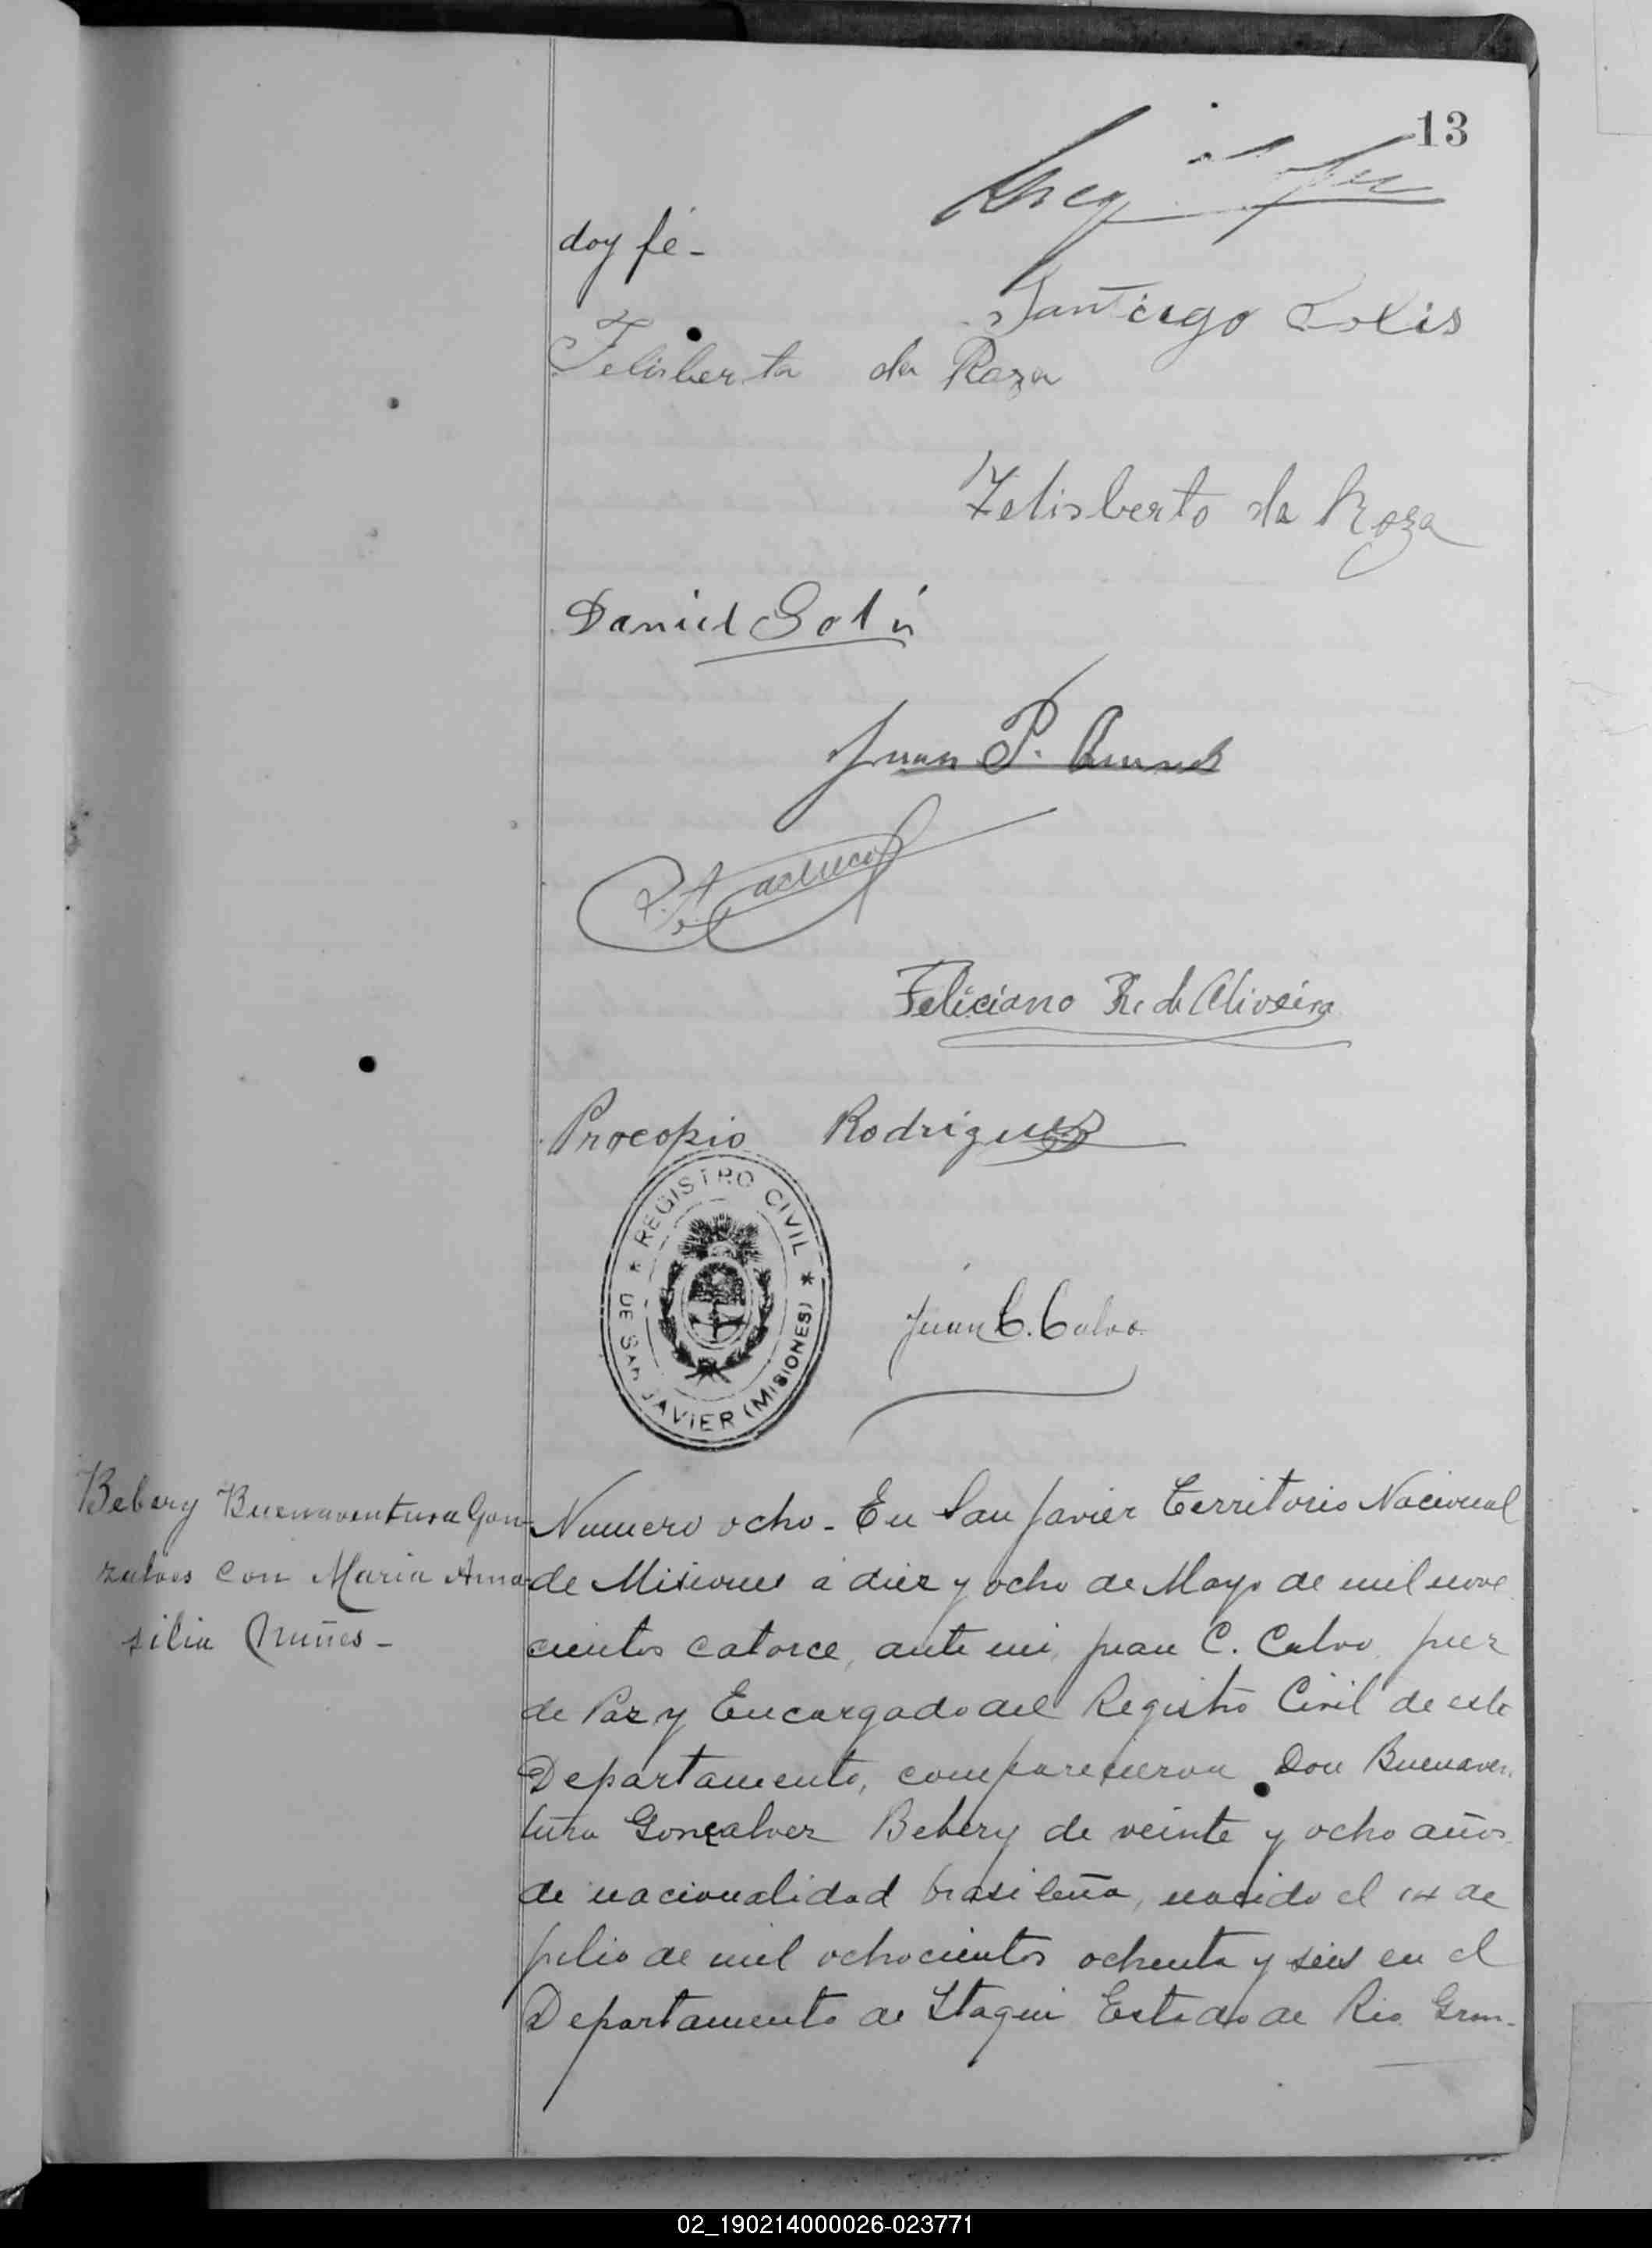 13
doy fé-
Santiago Solis
Felisberta da Roza
Felisberto da Roza
Daniel Solis
Juan P.
Feliciano R. de Oliveira
Procopio Rodriguez
* REGISTRO CIVIL *
DE SAN JAVIER (MISIONES)
Juan C. Calvo
Bebery Buenaventura Gon-
zalves con Maria Ama-
silia Nuñes-
Numero ocho- En San Javier Territorio Nacional
de Misiones á diez y ocho de Mayo de mil nove
cientos catorce, ante mi, Juan C. Calvo, juez
de Paz y Encargado del Registro Civil de este
Departamento, comparecieron Don Buenaven-
tura Gonçalvez Bebery de veinte y ocho años
de nacionalidad brasileña, nacido el 14 de
julio de mil ochocientos ochenta y seis en el
Departamento de Itaqui Estado de Rio Gran-
02_190214000026-023771